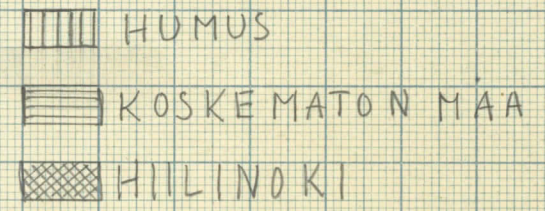 HUMUS
KOSKEMATON MÅA
HIILINOKI